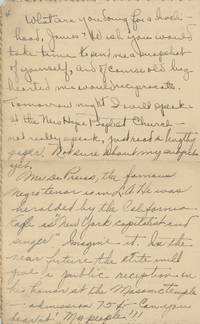 What are you doing for a hat-
band, James? We wish you would
take time to send me a snapshot
of yourself, and of course old big
hearted me would reciprocate.
Tomorrow night I will speak
at the New Hope Baptist Church -
not really speak, just read a lengthy
paper. Not sure about my subject
yet.
Mr. the famous
negro tenor is in L.A. He was
heralded by the California
Eagle as New York capitalist and
singer. Imagine it. In the
near future the state will
give a public reception in
his honor at the Masonic temple
- admission 75¢. Can you
bear it! My people!!!